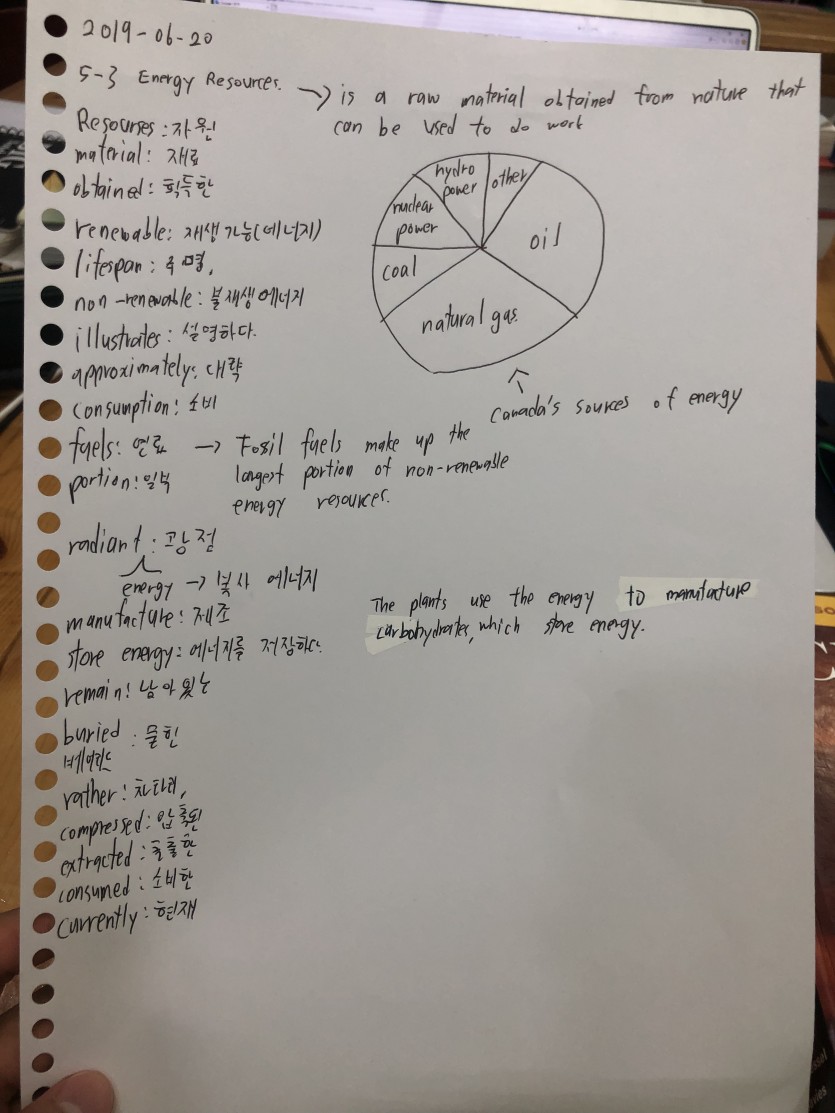 2019-06-20
5-3 Energy Resources. → is a raw material obtained from nature that
can be used to do work
Resourses : 자원
material : 재료
obtained : 획득한
renewable : 재생 가능(에너지)
lifespan : 수명,
non-renewable : 불재생에너지
illustrates : 설명하다.
approximately : 대략
consumption : 소비
fuels : 연료 → Fossil fuels make up the
largest portion of non-renewable
energy resources.
portion : 일부
radiant : 광점
energy → 복사 에너지
manufacture : 제조
store energy : 에너지를 저장하다.
remain : 남아있는
buried : 묻힌
베어리드
rather : 차라리,
compressed : 압축된
extracted : 추출한
consumed : 소비한
currently : 현재
hydro
power
other
nuclear
power
oil
coal
natural gas.
Canada's sources of energy
The plants use the energy to manufacture
carbohydrates, which store energy.